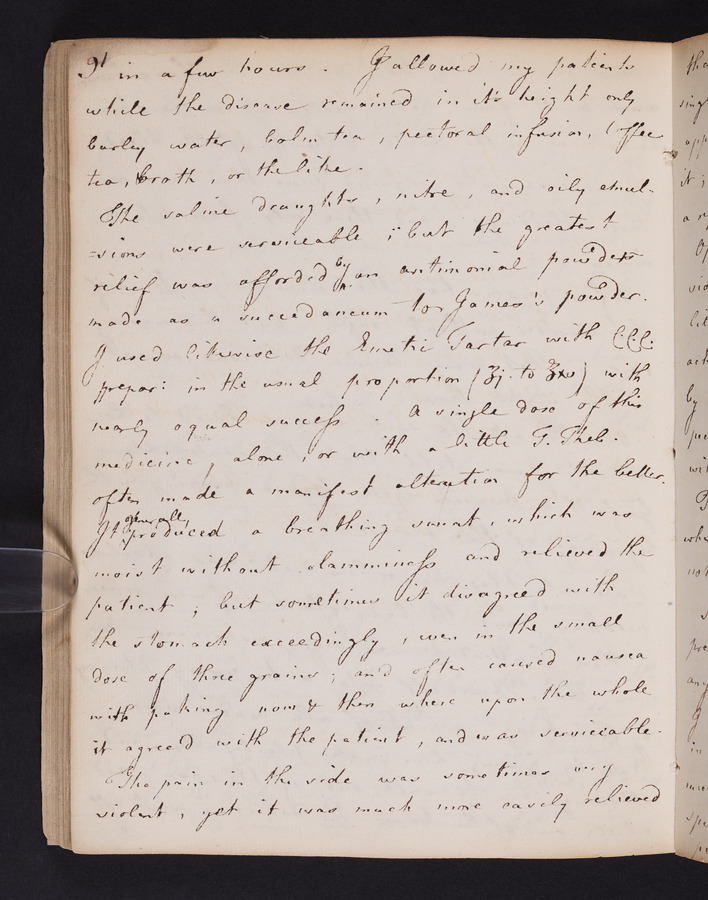 91 in a few hours. I allowed my patients
while the disease remained in it's height only
barley water, balm tea, pectoral infusion, Coffee
tea, broth, or the like.
The saline draughts, nitre, and oily emul-
=sions were serviceable; but the greatest
relief was afforded by an antimonial powder
made as a succedaneum for James's powder.
I used likewise the Emetic Tartar with C.C.C.
prepar: in the usual proportion (ʒj. to ʒxv) with
nearly equal success. A single dose of this
medicine, alone, or with a little T. Theb.
often made a manifest alteration for the better.
It generally produced a breathing sweat, which was
moist without clamminess and relieved the
patient; but sometimes it disagreed with
the stomach exceedingly, even in the small
dose of three grains; and often caused nausea
with puking now & then where upon the whole
it agreed with the patient, and was serviceable.
The pain in the side was sometimes very
violent, yet it was much more easily relieved